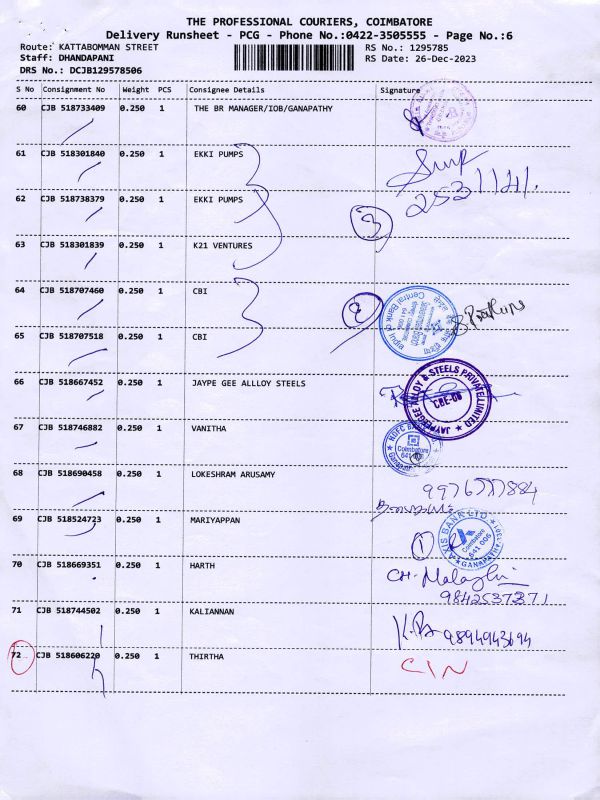 THE PROFESSIONAL COURIERS, COIMBATORE
Delivery Runsheet - PCG - Phone No.:0422-3505555 - Page No.:6
Route: KATTABOMMAN STREET
RS No.: 1295785
Staff: DHANDAPANI
RS Date: 26-Dec-2023
DRS No.: DCJB129578506
S No Consignment No Weight PCS Consignee Details Signature
60 CJB 518733409 0.250 1 THE BR MANAGER/IOB/GANAPATHY
61 CJB 518301840 0.250 1 EKKI PUMPS
62 CJB 518738379 0.250 1 EKKI PUMPS
3
63 CJB 518301839 0.250 1 K21 VENTURES
64 CJB 518707460 0.250 1 CBI
Central Bank of India
65 CJB 518707518 0.250 1 CBI
66 CJB 518667452 0.250 1 JAYPE GEE ALLLOY STEELS
JAYPEEGEE ALLOY & STEELS PRIVATE LIMITED
CBE-06
67 CJB 518746882 0.250 1 VANITHA
HDFC BANK
Coimbatore
68 CJB 518690458 0.250 1 LOKESHRAM ARUSAMY
69 CJB 518524723 0.250 1 MARIYAPPAN
AXIS BANK LTD
Coimbatore
641 006
GANAPATHY
1
70 CJB 518669351 0.250 1 HARTH
9842537371
71 CJB 518744502 0.250 1 KALIANNAN
9894943694
72 CJB 518606220 0.250 1 THIRTHA
CIN